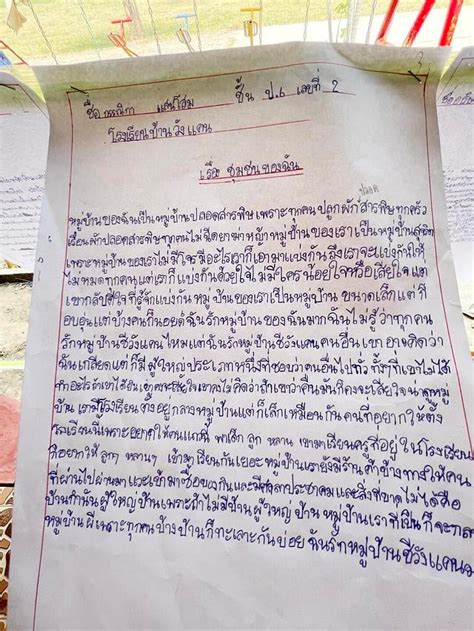 ชื่อ กรณิกา แคนโสม ชั้น ป.6 เลขที่ 2
โรงเรียนบ้านวังแคน
เรื่อง ชุมชนของฉัน
ปลอด
หมู่บ้านของฉันเป็นหมู่บ้านปลอดสารพิษ เพราะทุกคนปลูกผักสารพิษทุกครัว
เรือนผักปลอดสารพิษทุกคนไม่ฉีดยาฆ่าหญ้าหมู่บ้านของเราเป็นหมู่บ้าน
เพราะหมู่บ้านของเราไม่มีโจรมีอะไรเราก็เอามาแบ่งกันถึงเราจะแบ่งกันให้
ไม่หมดทุกคนแต่เราก็แบ่งกันด้วยใจไม่มีใครน้อยใจหรือเสียใจแต่
เขากลับดีใจที่รู้จักแบ่งกัน หมู่บ้านของเราเป็นหมู่บ้าน ขนาดเล็กแต่ก็
อบอุ่นแต่บางคนก็ ฉันรักหมู่บ้านของฉันมากฉันไม่รู้ว่าทุกคน
รักหมู่บ้านชีวังแคนไหมแต่ฉันรักหมู่บ้านชีวังแคนคนอื่นเขาอาจคิดว่า
ฉันเกลียดแต่ก็มีผู้ใหญ่ประเภทหนึ่งที่ชอบว่าคนอื่นไปทั่วทั้งๆที่เขาไม่ได้
ทำอะไร เขาคงไม่คิดว่าถ้าเขาว่าคืนมันก็คงจะเสียใจ
บ้าน เรามีโรงเรียน อยู่กลางหมู่บ้านแต่ก็เล็กเหมือนกันคนที่อยากให้
โรงเรียนนี้เพราะอยากให้คนแถวนี้ พาเด็ก ลูก หลาน เข้ามาเรียนครูที่อยู่ในโรงเรียน
ก็อยากให้ ลูกๆ หลานๆ เข้ามาเรียนกันเยอะๆ หมู่บ้านเรายังมีร้านค้าข้างทางให้คน
ที่ผ่านไปผ่านมา แวะเข้ามาซื้อของกันและมีศาลาประชาคม และสิ่งที่ขาดไม่ได้คือ
บ้านกำนันผู้ใหญ่บ้านเพราะถ้าไม่มีบ้านผู้ใหญ่บ้าน หมู่บ้านเราที่เป็น ก็จะ
หมู่บ้านผีเพราะทุกคน บ้านก็ทะเลาะกันบ่อย ฉันรักหมู่บ้านชีวังแคน